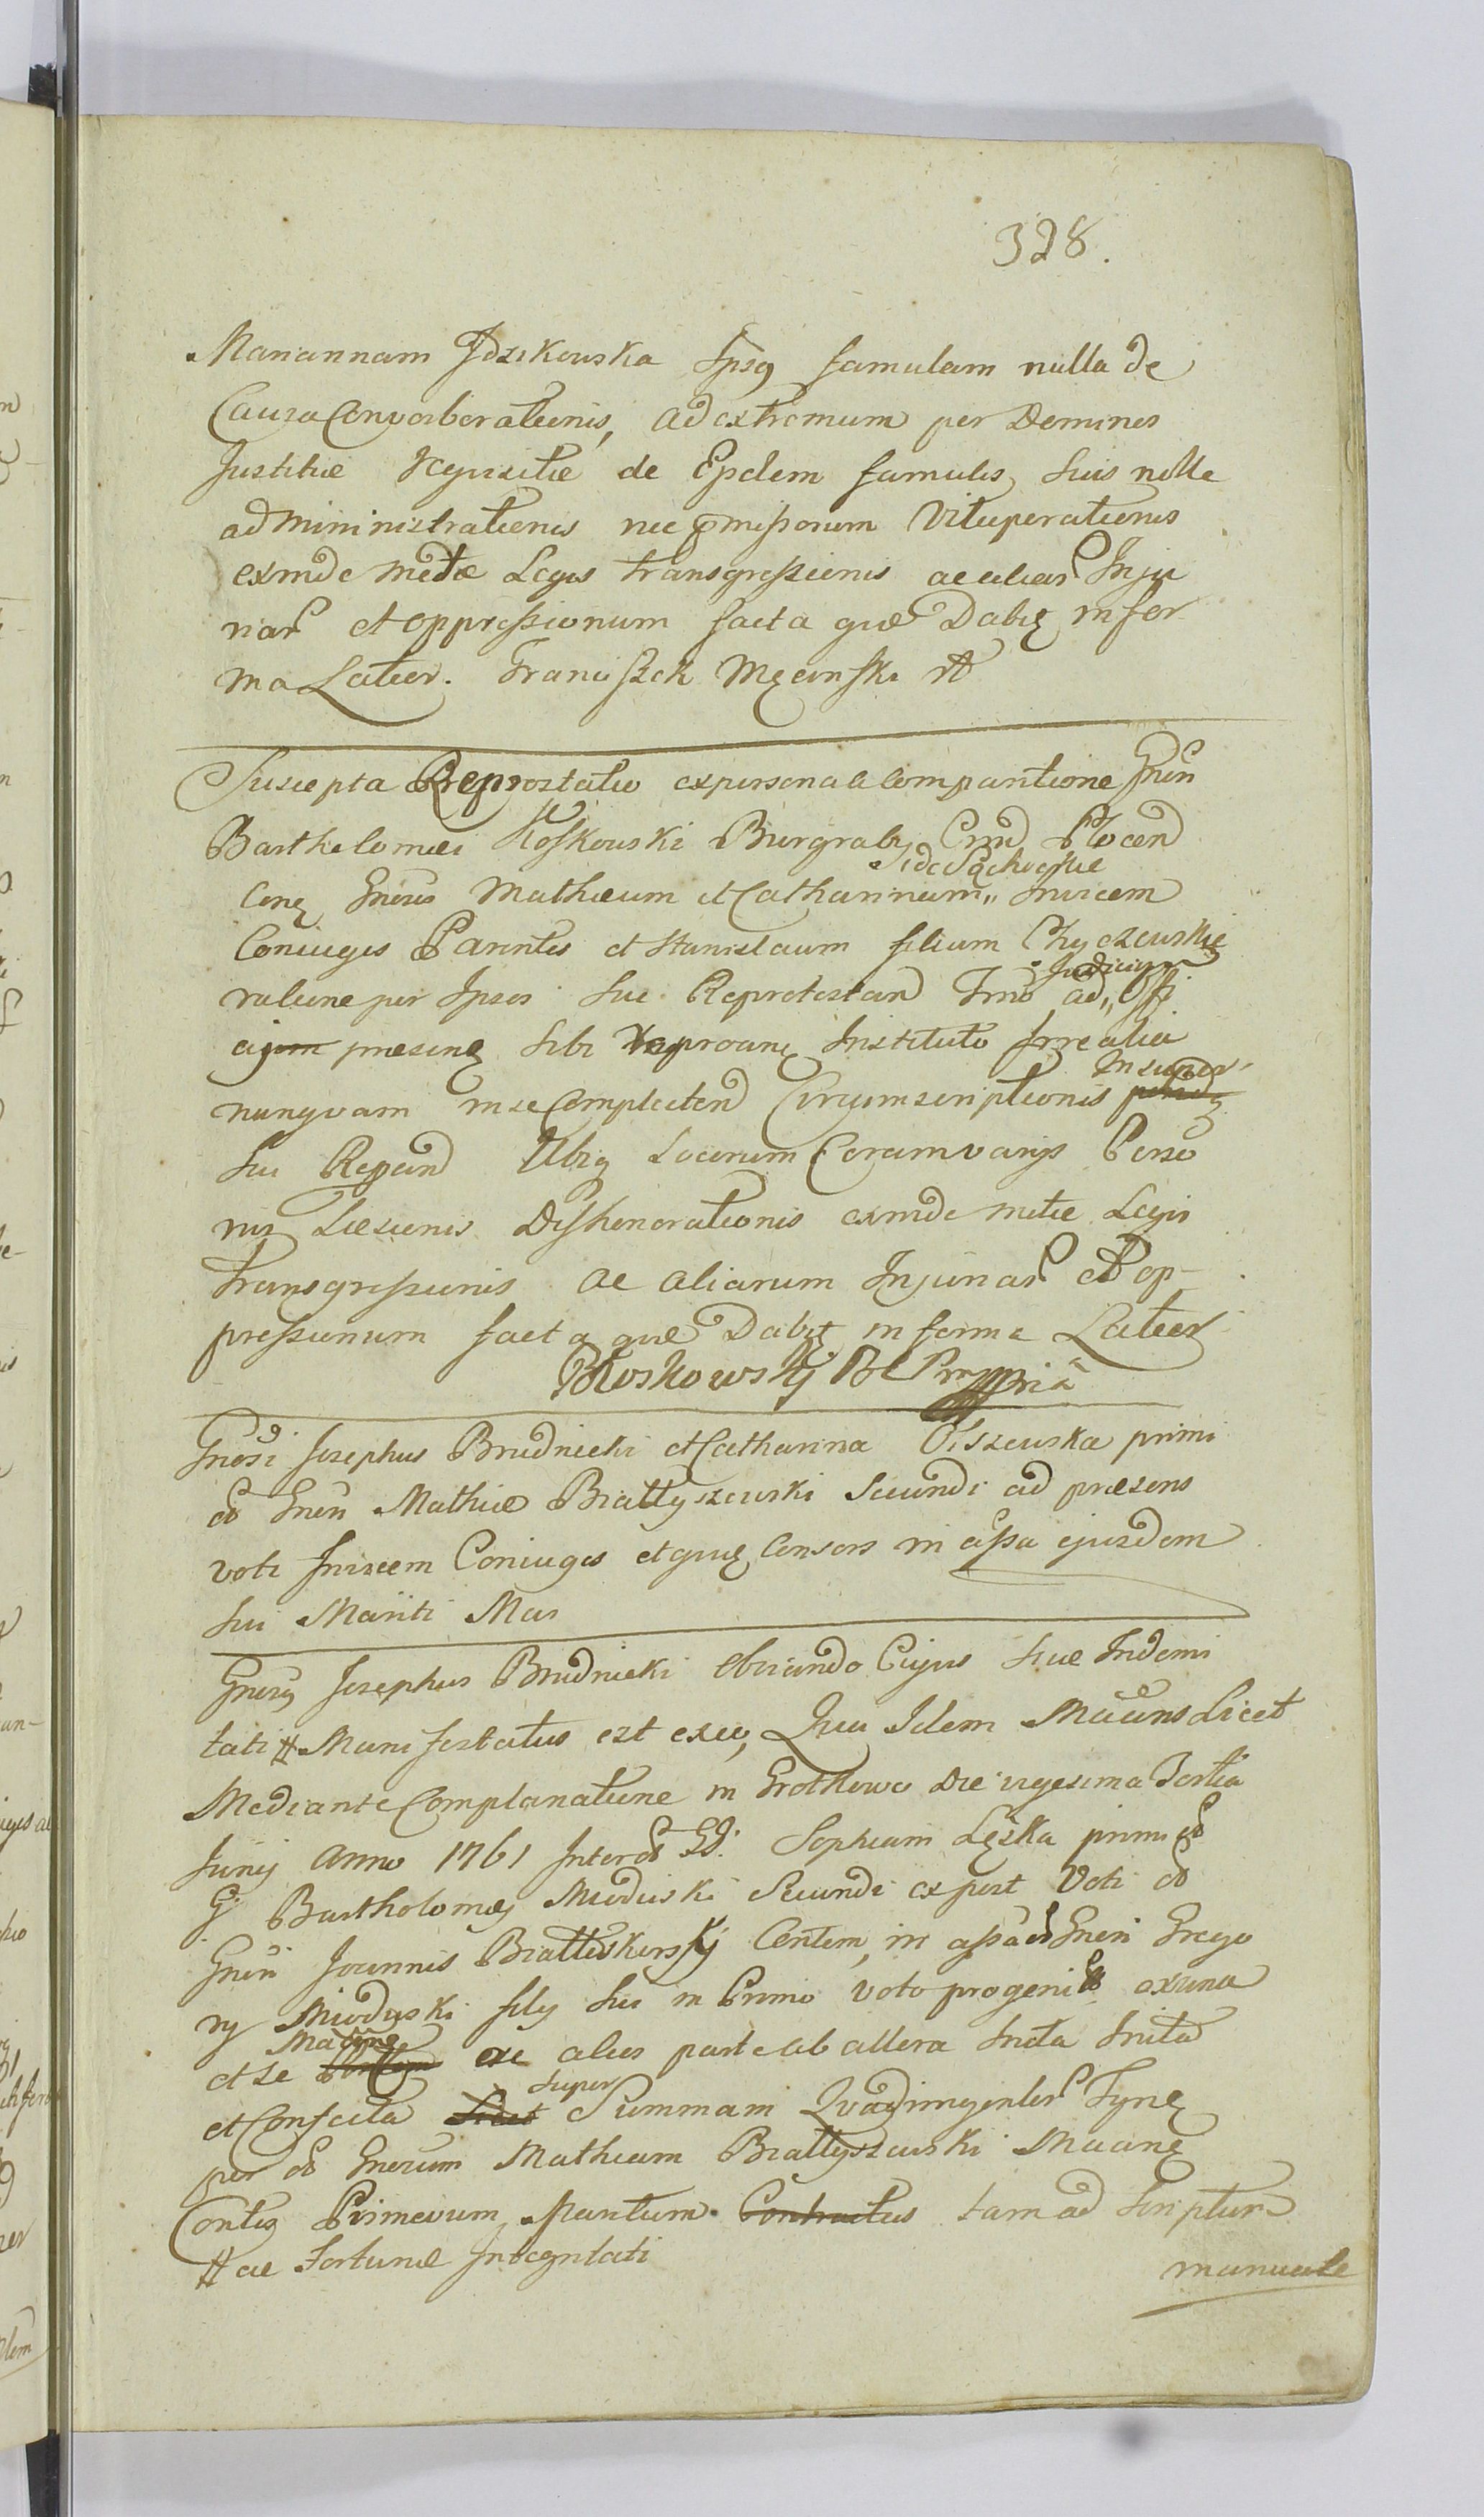 328.
Mariannam Jdzikowska Ipsq famulam nulla de
Causa Converberationis, ad extremum per Dominos
Justitiæ requisitæ de Ejsdem famulis suis nolle
admininistrationis nec pmissorum Vituperationis
exinde Metæ Legis transgressionis ac aliar Inju
riar et oppressionum facta quæ Dabit in for
ma Latior. Franciszek Męcinski
Suscepta Reprostatio ex personali comparitione Gnen
Bartholomæi Koskowski Burgraby Cmd Plocen
Con Gnosos Mathæum et Catharinam,, Invicem
de Sąchockie
Coniuges Parentes et Stanislaum filium Chyczewskie
ratione per Ipsos suc Reprotestan Imo ad,, Offi
Judicium
cium præsens sibi improane Instituto Irre alia
nunquam in se Complecten Circumscriptionis
Insuper
suc Reppan Ubiq Locorum Coram varijs Perso
nis Læsionis Dishonorationis exinde metæ Legis
transgressionis ac aliarum Injuriar et op-
pressionum facta quæ Dabit in forma Latior
BKoskowskij BC Pmppriâ
Gnosi Josephus Brudnicki et Catharina Olszewska primi
od Gnen Mathiæ Biallyszewski Secundi ad præsens
voti Invicem Coniuges et quæ Consors in assa ejusdem
sui Mariti Mar
Gnosus Josephus Brudnicki obviando Cujus suæ Indemi
tati # Manifestatus est exeo, Quia Idem Maans Licet
Mediante Complanatione in Grotkowo Die vigesima Tertia
Junij Anno 1761 Inter GG. Sophiam Lęska primi od
G Bartholomæj Mioduski Secundi ex post Voti od
Gnen Joannis Bialłoskurskj Contem, in assa od Gnen Grego
rij Mioduski filij sui in Primo voto progenit ex una
et se Maane ac alios parte ab altera Inita Inita
et Confecta super Summam Quadringentor Tyne
per od Gnosum Mathiam Biallyszewski Maane
Contes Primævum, partum Contractus tam ad scriptur
# ac Fortunæ Integritati
manuale